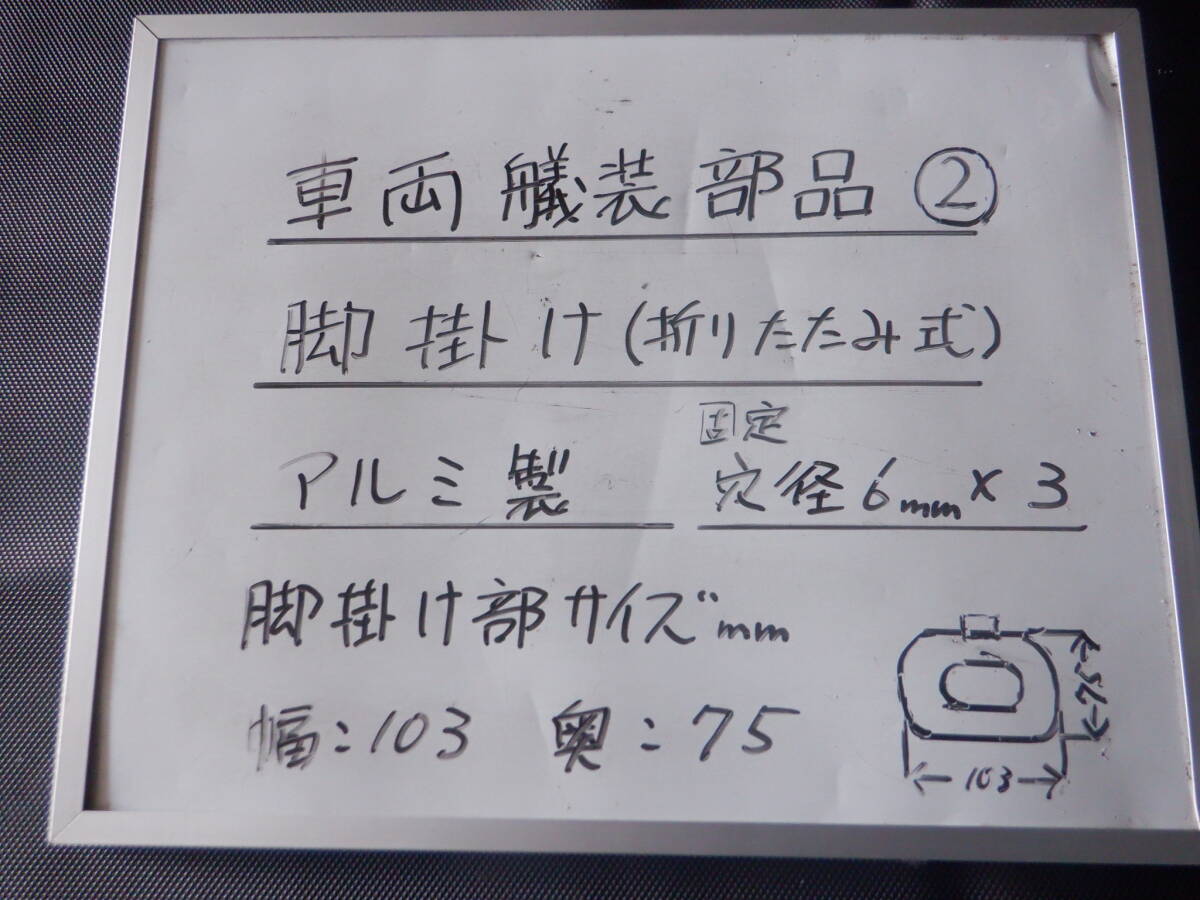 車両艤装部品②
脚掛け(折りたたみ式)
アルミ製
固定
穴径6mm×3
脚掛け部サイズmm
幅:103 奥:75
75
103